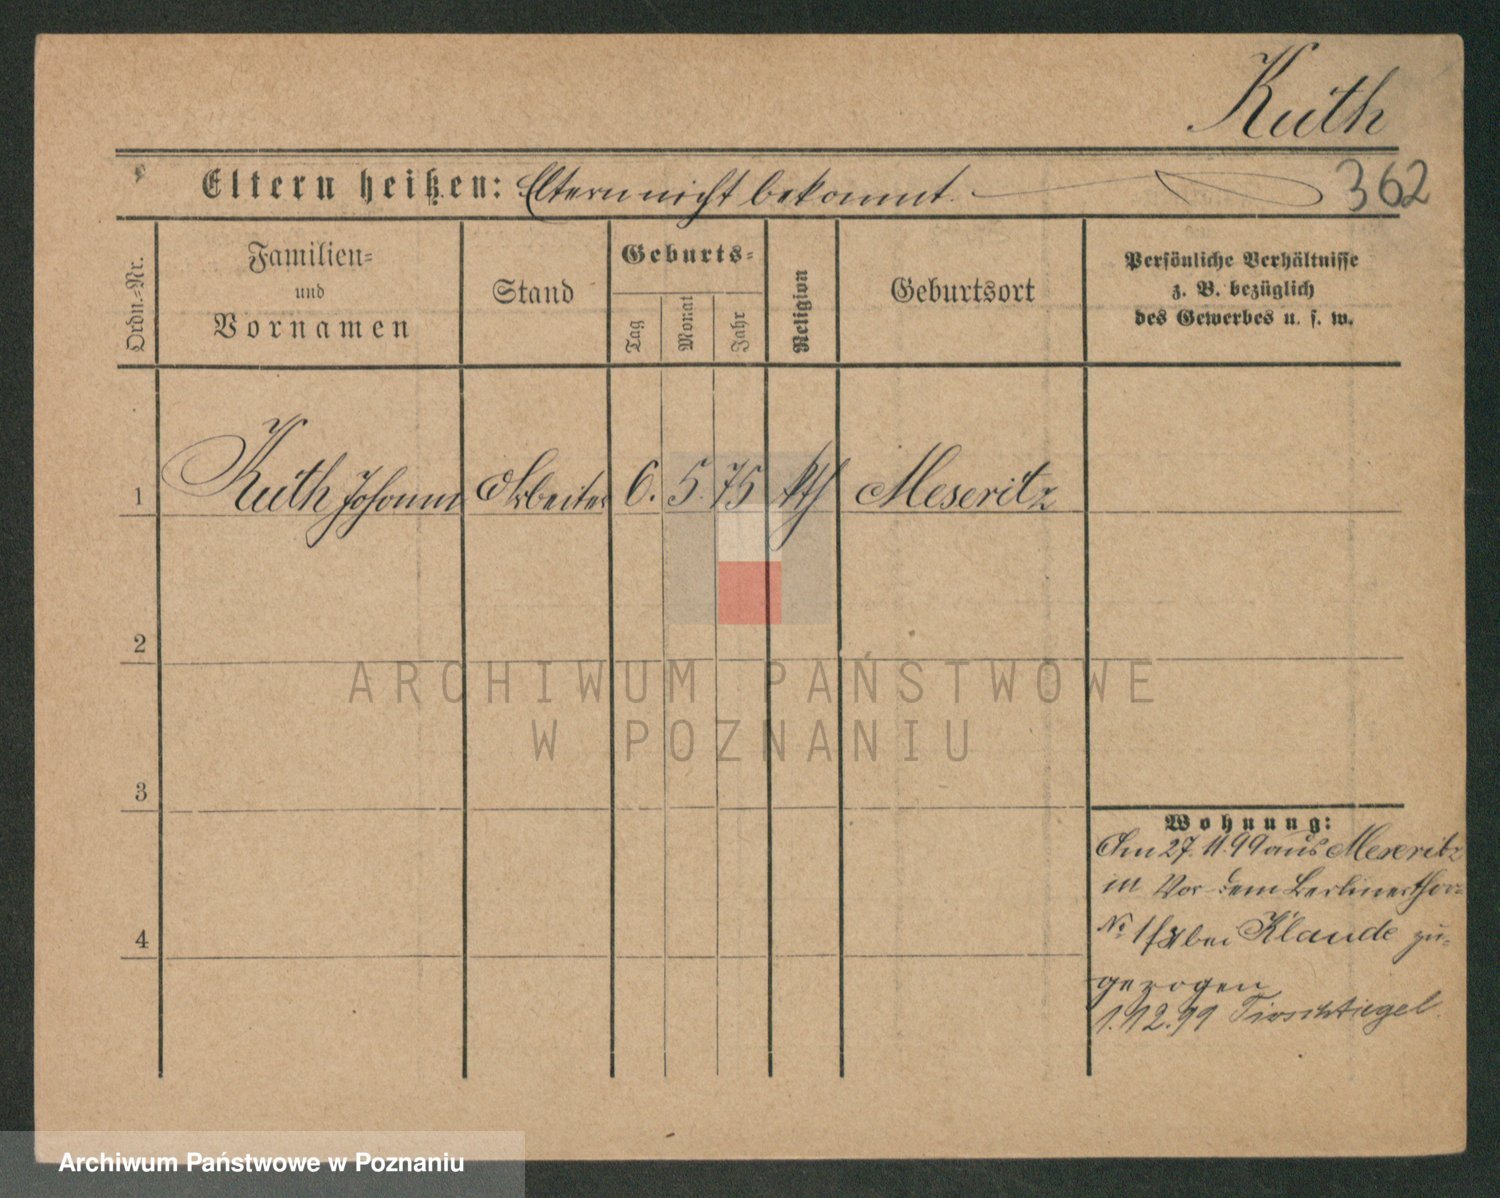 Kuth
Eltern heißen: Eltern nicht bekannt.
362
Ordn.-Nr.
Familien-
und
Vornamen
Stand
Geburts-
Tag
Monat
Jahr
Religion
Geburtsort
Persönliche Verhältnisse
z. B. bezüglich
des Gewerbes u. s. w.
1 Kuth Johann Arbeiter 6. 5. 75 kth Meseritz
2
3
4
ARCHIWUM PAŃSTWOWE
W POZNANIU
Wohnung:
Am 27.11.99 aus Meseritz
in Vor dem Berlinerthor
No bei Klaude zu-
gezogen
1.12.99 Tirschtiegel.
Archiwum Państwowe w Poznaniu